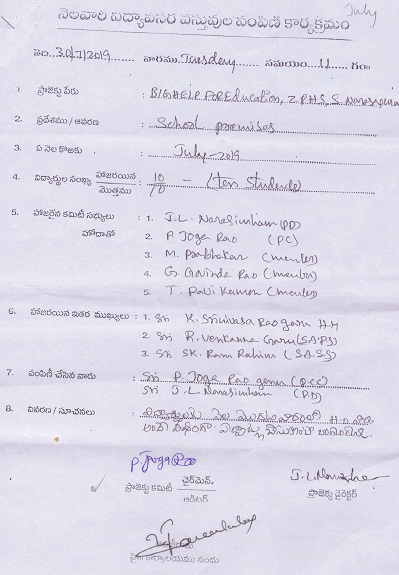 July
నెలవారి విద్యావసర వస్తువుల పంపిణి కార్యక్రమం
తేది. 30/7/2019 వారము Tuesday సమయం 11 గం॥
1. ప్రాజెక్టు పేరు : BIGHELP FOR Education, Z.P.H.S, S. Narasapuram
2. ప్రదేశము / ఆవరణ : School premises
3. ఏ నెల కొఱకు : July-2019
4. విద్యార్థుల సంఖ్య హాజరయిన/మొత్తము : 10/10 - (ten students)
5. హాజరైన కమిటీ సభ్యులు : 1. J.L. Narasimham (PD)
హోదాతో 2. P. Joga Rao (PC)
3. M. Prabhakar (member)
4. G. Govinda Rao (member)
5. T. Pavi Kumar (member)
6. హాజరయిన ఇతర ముఖ్యులు : 1. Sri K. Srinivasa Rao garu H.M
2. Sri R. Venkanna Garu (SA.PS)
3. Sri SK. Ram Rahim (SA.SS)
7. పంపిణీ చేసిన వారు : Sri P. Joga Rao garu (P.CC)
Sri J.L. Narasimham (P.D)
8. వివరణ / సూచనలు :
P. Joga Rao
ప్రాజెక్టు కమిటీ ఛైర్మెన్. ఆడిటర్
J.L. Narasimham
ప్రాజెక్టు డైరెక్టర్
కార్యాలయము నందు